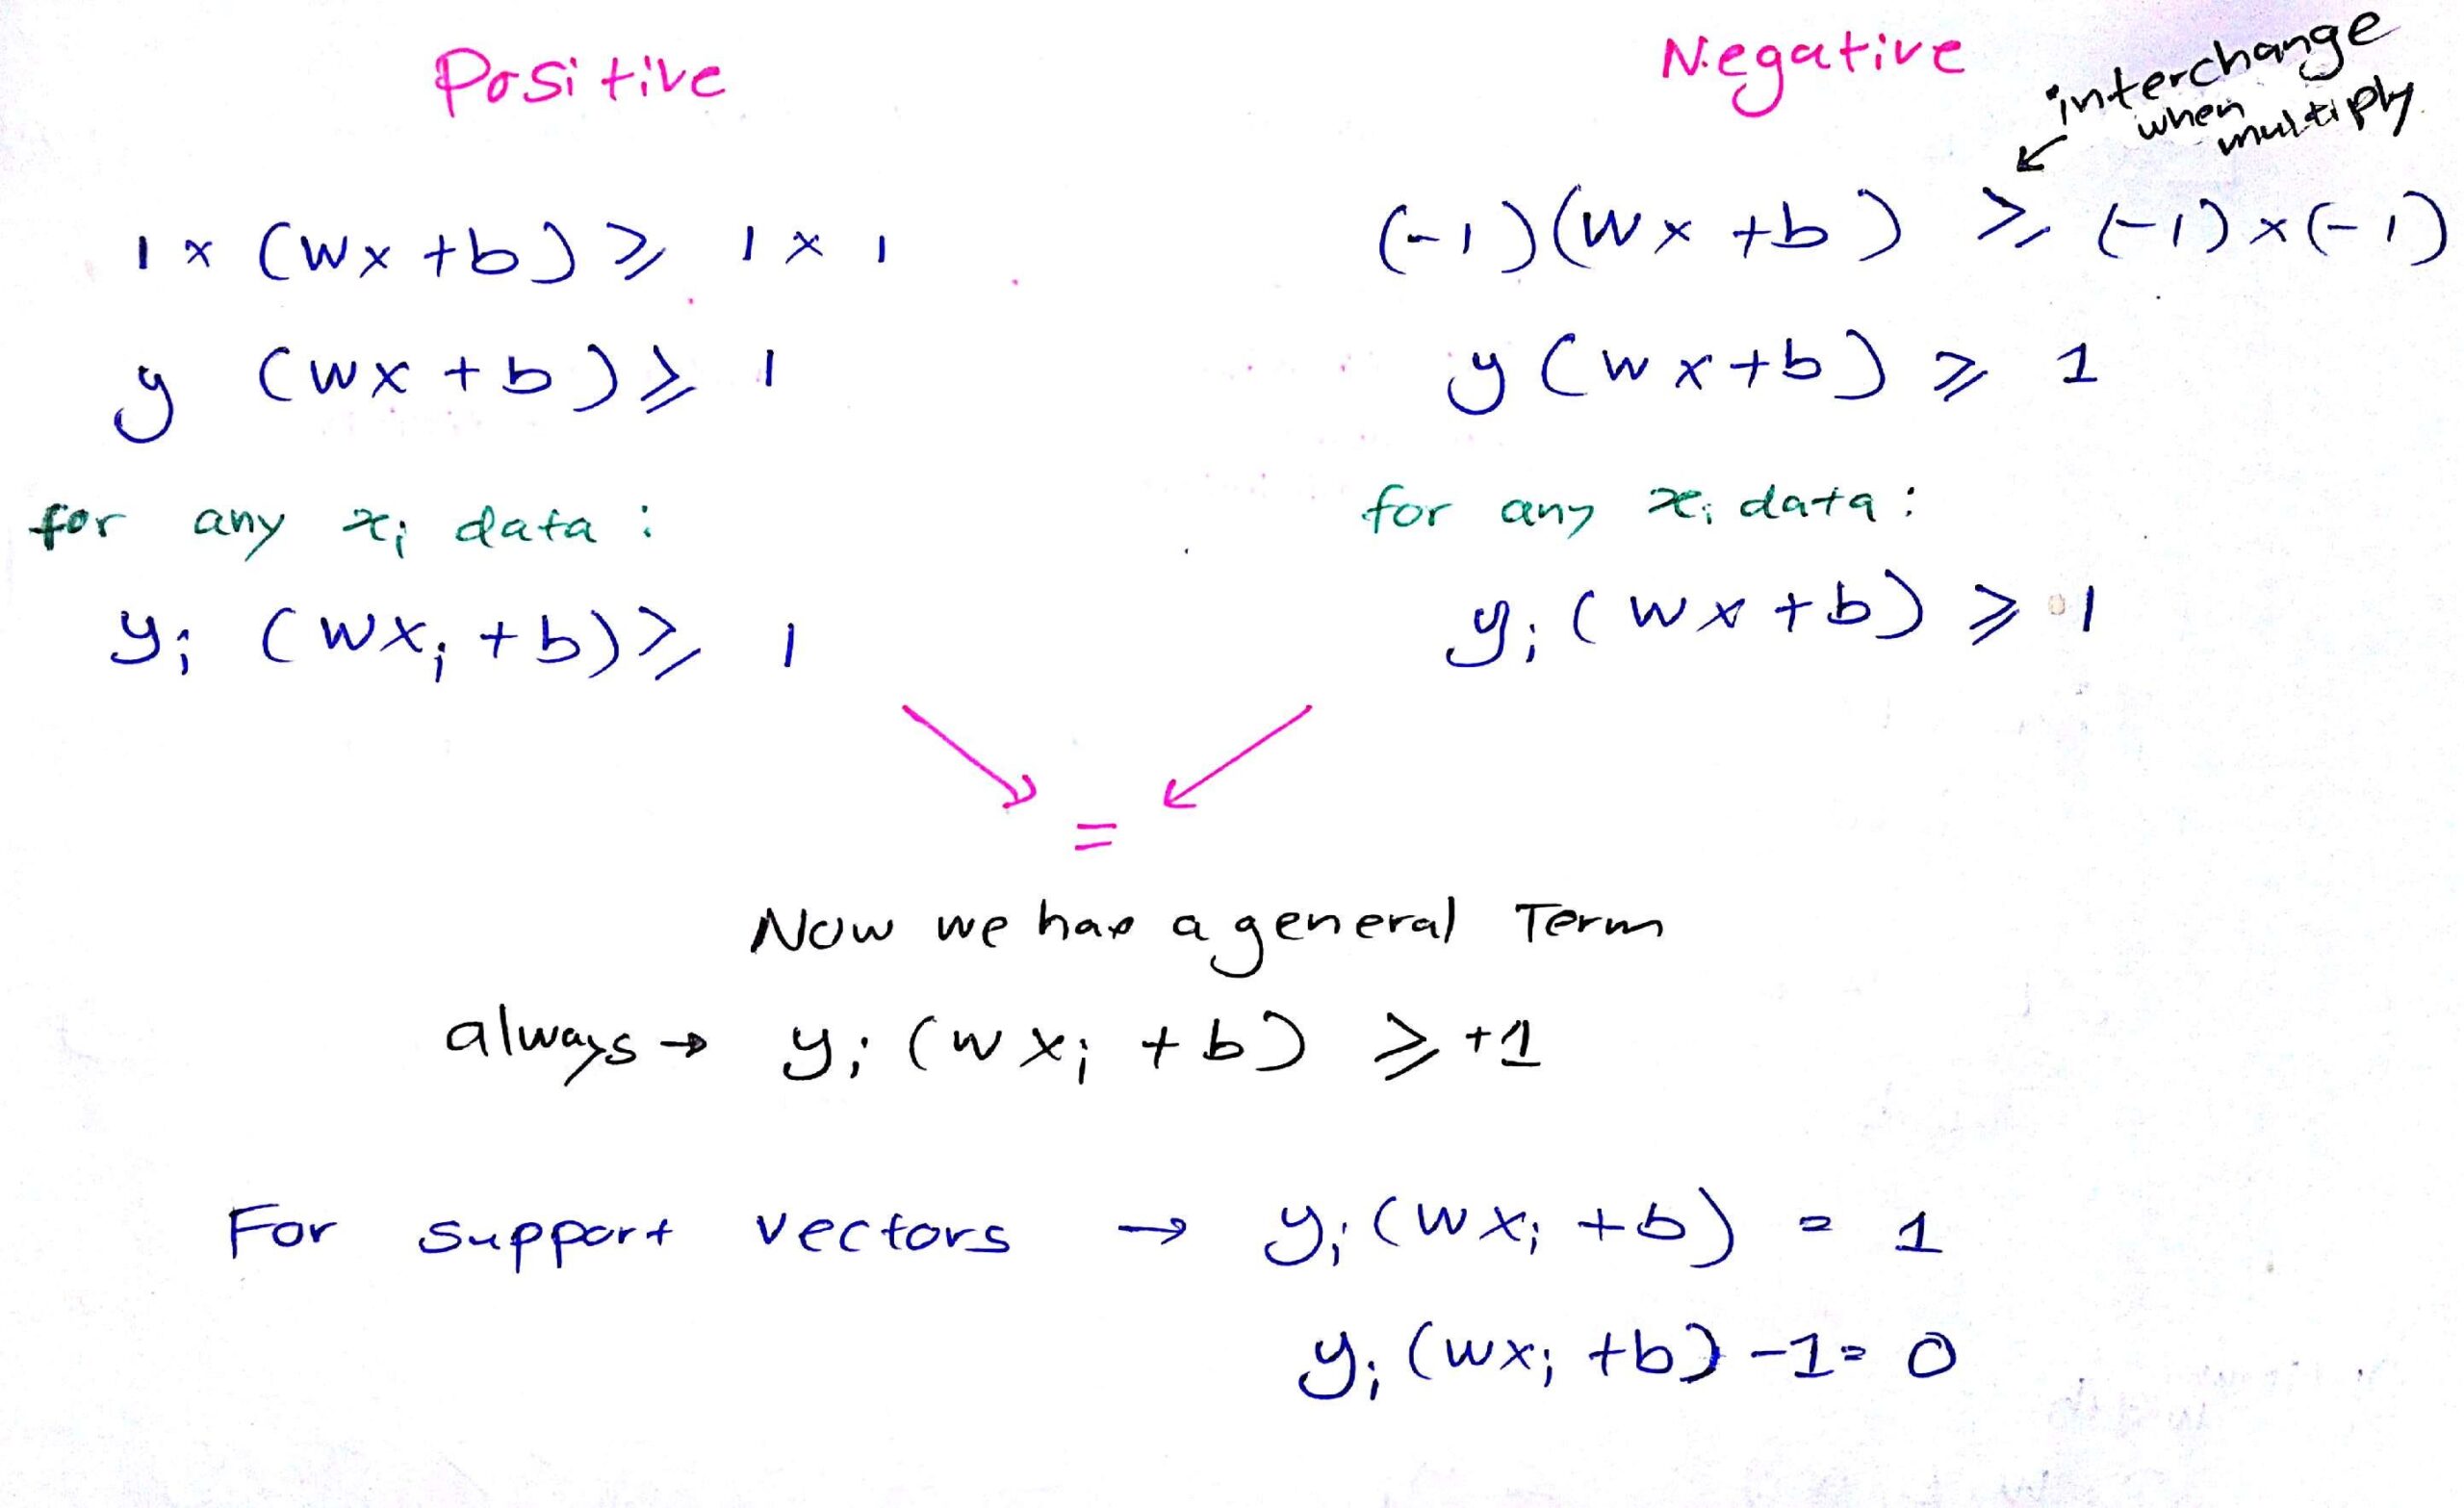 Positive
1 × (wx + b) ⩾ 1 × 1
y (wx + b) ⩾ 1
for any xi data :
yi (wxi + b) ⩾ 1
Negative
interchange
when
multiply
(-1)(wx + b) ⩾ (-1)×(-1)
y (wx + b) ⩾ 1
for any xi data :
yi (wx + b) ⩾ 1
=
Now we have a general Term
always → yi (wxi + b) ⩾ +1
For support vectors → yi (wxi + b) = 1
yi (wxi + b) - 1 = 0